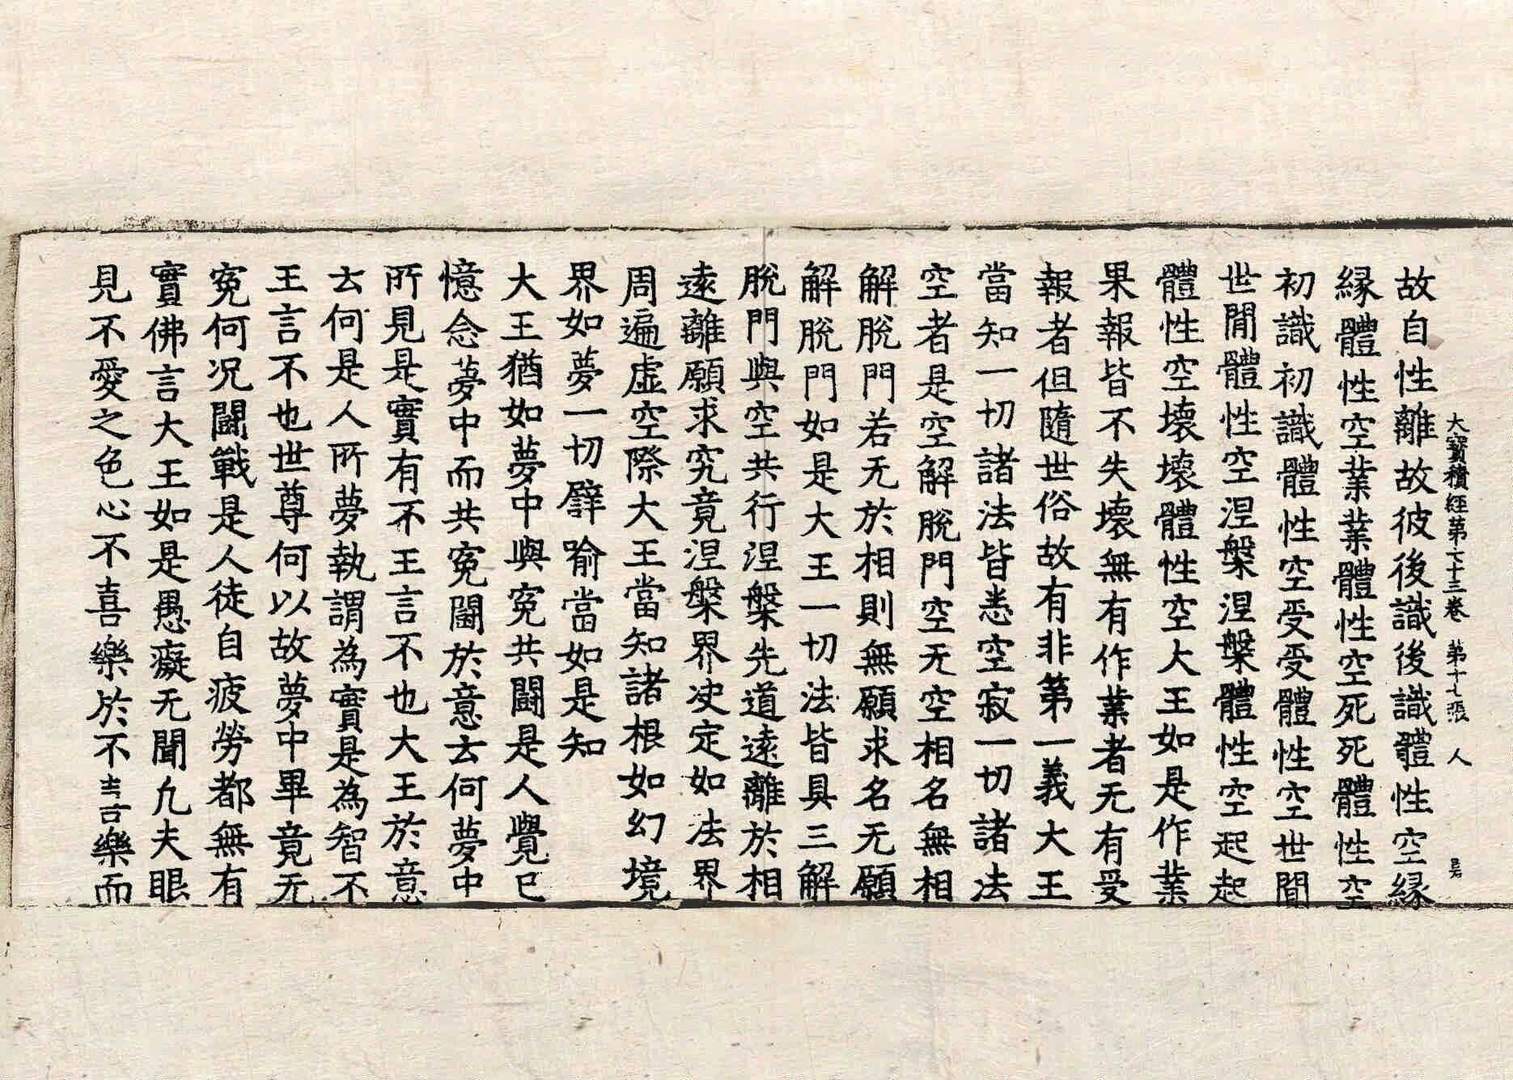 大寶積經第七十三卷 第十七張 人
故自性離故彼後識後識體性空緣
緣體性空業業體性空死死體性空
初識初識體性空受受體性空世間
世間體性空涅槃涅槃體性空起起
體性空壞壞體性空大王如是作業
果報皆不失壞無有作業者无有受
報者但隨世俗故有非第一義大王
當知一切諸法皆悉空寂一切諸法
空者是空解脫門空无空相名無相
解脫門若无於相則無願求名无願
解脫門如是大王一切法皆具三解
脫門與空共行涅槃先道遠離於相
遠離願求究竟涅槃界决定如法界
周遍虛空際大王當知諸根如幻境
界如夢一切譬喻當如是知
大王猶如夢中與寃共鬪是人覺已
憶念夢中而共寃鬪於意云何夢中
所見是實有不王言不也大王於意
云何是人所夢執謂為實是為智不
王言不也世尊何以故夢中畢竟无
寃何況鬪戰是人徒自疲勞都無有
實佛言大王如是愚癡无聞凢夫眼
見不愛之色心不喜樂於不喜樂而